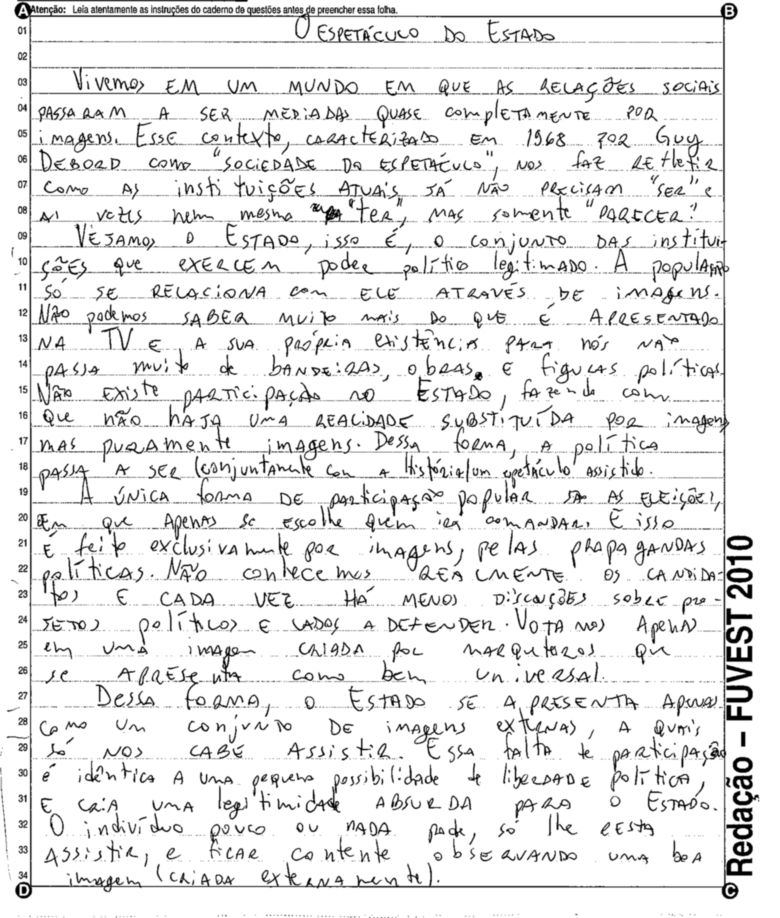 A Atenção: Leia atentamente as instruções do caderno de questões antes de preencher essa folha. B
01 O ESPETÁCULO DO ESTADO
02
03 Vivemos EM UM MUNDO EM QUE AS RELAÇÕES SOCIAIS
04 PASSARAM A SER MEDIADAS QUASE COMPLETAMENTE POR
05 imagens. Esse contexto, CARACTERIZADO EM 1968 POR Guy
06 DEBORD como "SOCIEDADE DO ESPETÁCULO", nos faz REFLETIR
07 como AS instituições ATUAIS JÁ NÃO PRECISAM "SER" e
08 às vezes nem mesmo "TER", MAS somente "PARECER".
09 VEJAMOS O ESTADO, isso É, o conjunto DAS institui-
10 ÇÕES que EXERCEM poder político legitimado. A população
11 SÓ SE RELACIONA com ELE ATRAVÉS DE imagens.
12 NÃO podemos SABER muito mais do que é APRESENTADO
13 NA TV E A SUA própria existência PARA nós não
14 PASSA muito de BANDEIRAS, obras E figuras políticas.
15 NÃO EXISTE PARTICIPAÇÃO NO ESTADO, fazendo com
16 que não HAJA UMA REALIDADE SUBSTITUÍDA POR imagens
17 mas puramente imagens. Dessa forma, A política
18 PASSA A SER (conjuntamente com a História) um espetáculo assistido.
19 A única forma DE participação popular são AS ELEIÇÕES,
20 Em que Apenas se escolhe quem irá comandar. E isso
21 É feito exclusivamente por imagens, pelas PROPAGANDAS
22 políticas. NÃO conhecemos REALMENTE OS CANDIDA-
23 tos E CADA VEZ HÁ MENOS DISCUÇÕES SOBRE PRO-
24 JETOS políticos E LADOS A DEFENDER. VOTAMOS Apenas
25 em uma imagem CRIADA por MARQUTEROS QUE
26 se APRESENTA como bem universal.
27 Dessa forma, o ESTADO SE APRESENTA Apenas
28 como um conjunto DE imagens externas, A quais
29 só NOS CABE ASSISTIR. Essa falta de participação
30 é idêntica A uma pequena possibilidade de liberdade política,
31 E CRIA UMA legitimidade ABSURDA PARA O ESTADO.
32 O indivíduo pouco ou NADA pode, só lhe RESTA
33 ASSISTIR, e FICAR contente observando uma boa
34 imagem (CRIADA externamente).
D C
Redação – FUVEST 2010